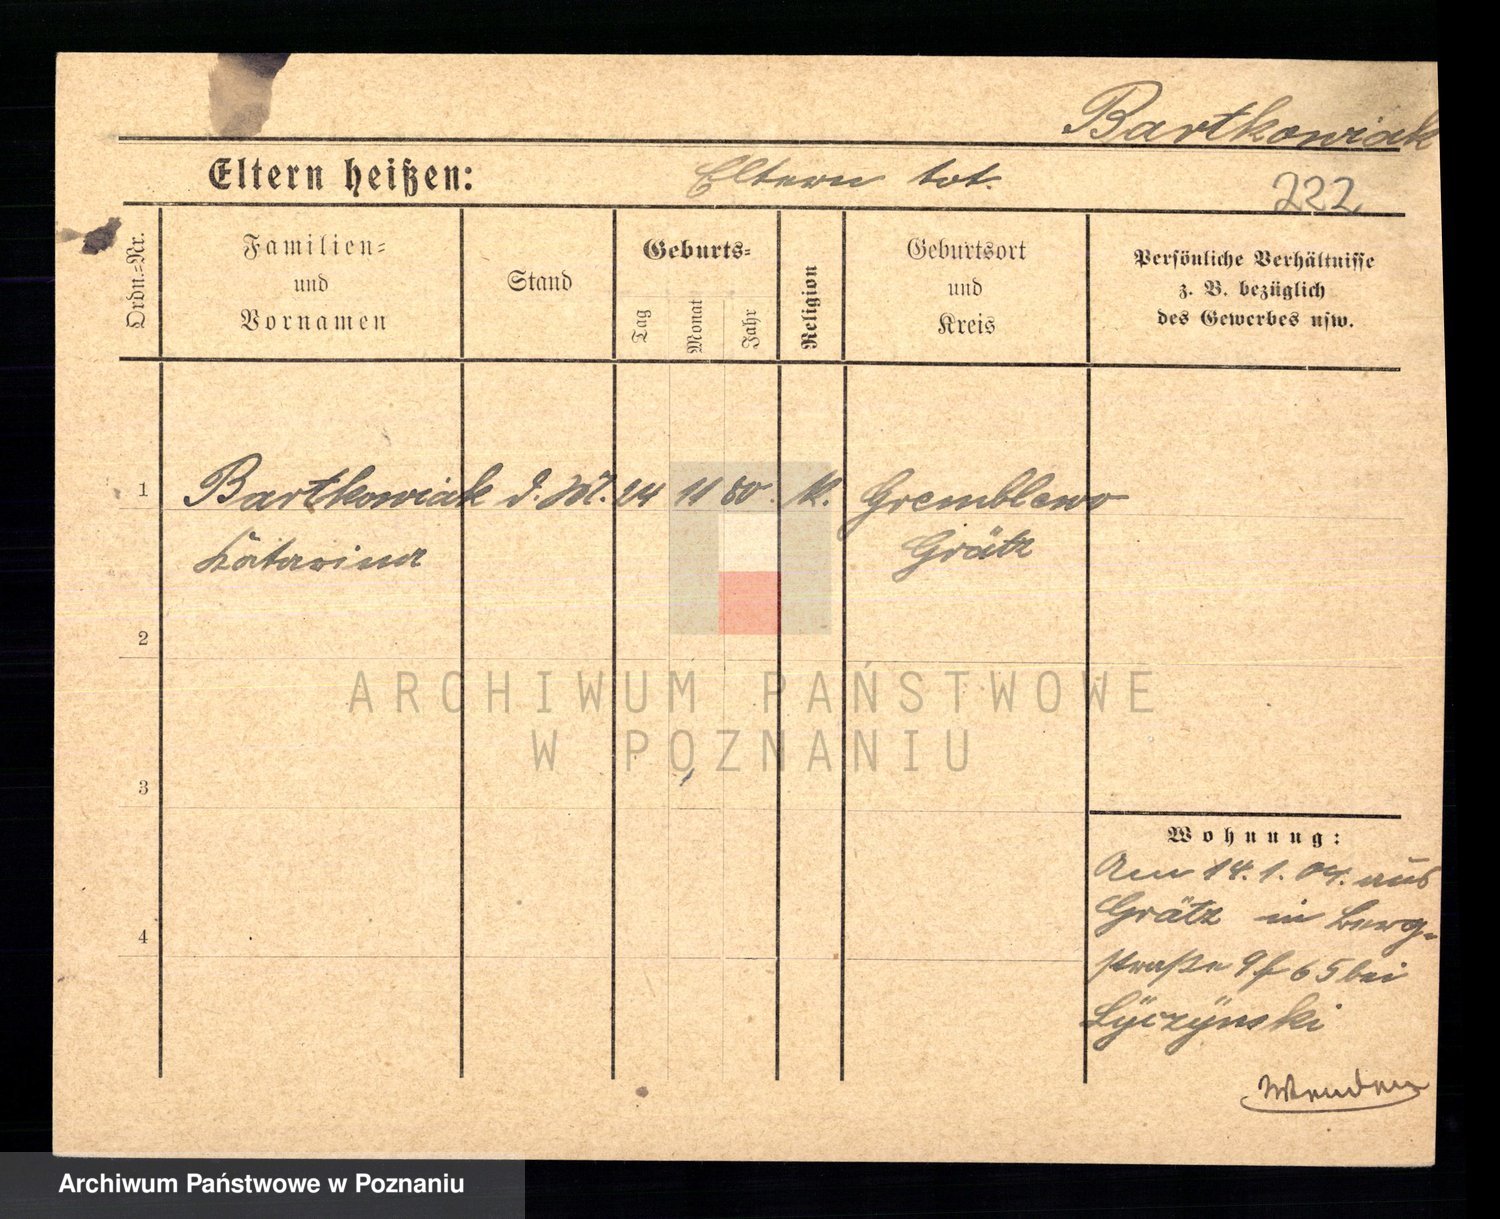 Bartkowiak
Eltern heißen: Eltern tot.
222
Ordn.-Nr.
Familien-
und
Vornamen
Stand
Geburts-
Tag
Monat
Jahr
Religion
Geburtsort
und
Kreis
Persönliche Verhältnisse
z. B. bezüglich
des Gewerbes usw.
1 Bartkowiak d. M. 24 11 80. K. Gremblewo
Katarina Grätz
2
ARCHIWUM PAŃSTWOWE
W POZNANIU
3
Wohnung:
Am 14. 1. 04. aus
Grätz in Berg-
4
straße 9 f 65 bei
Lÿczÿnski
Wenden
Archiwum Państwowe w Poznaniu